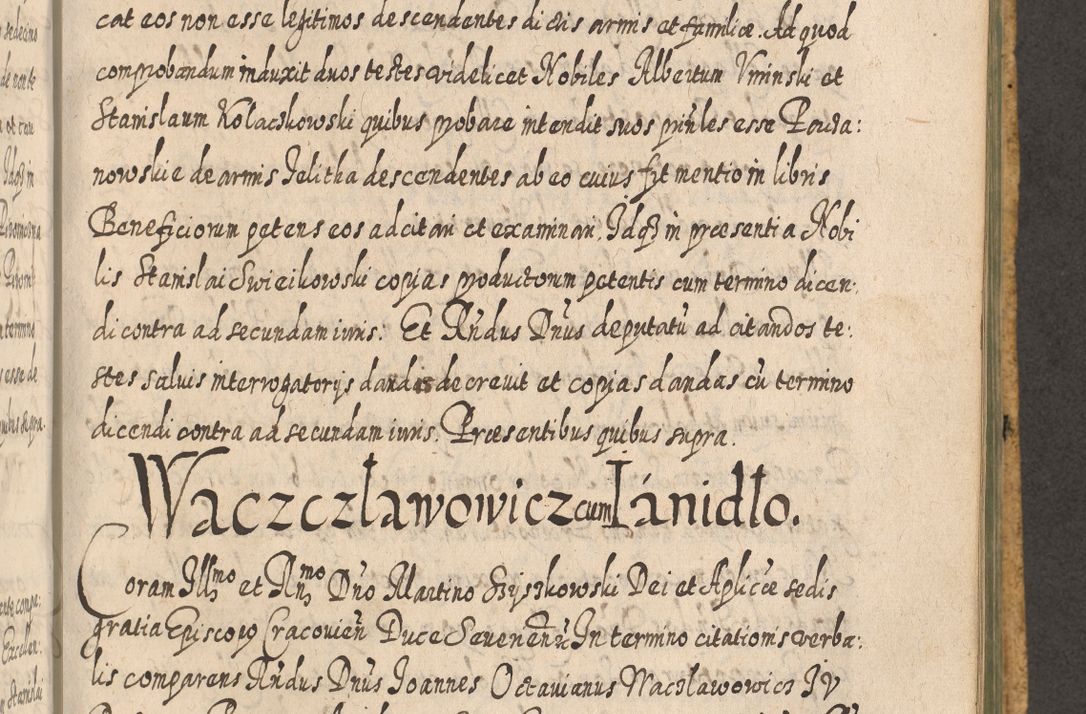 cat eos non esse legitimos descendentes dictis armis et familiæ. Ad quod
comprobandum induxit duos testes videlicet Nobiles Albertum Uminski et
Stanislaum Kolaczkowski quibus probare intendit suos prin̄les esse Porda:
nowskie de armis Jelitha descendentes ab eo cuius fit mentio in libris
Beneficiorum petens eos ad citari et examinari, Idq̄ in præsentia Nobi
lis Stanislai Swiecikowski copias productorum petentis cum termino dicen:
di contra ad secundam iuris: Et Rn̄dus Dn̄us deputatū ad citandos te:
stes saluis interrogatorijs dandis decreuit et copias dandas cū termino
dicendi contra ad secundam iuris. Præsentibus quibus supra.
Waczczławowicz cum Ianidło.
Coram Illmo et Rn̄mo Dn̄o Martino Szyszkowski Dei et Aplicæ sedis
gratia Episcopo Cracovien̄ Duce Severien̄ In termino citationis verba:
lis comparens Rn̄dus Dn̄us Joannes Octavianus Waczlawowicz IV